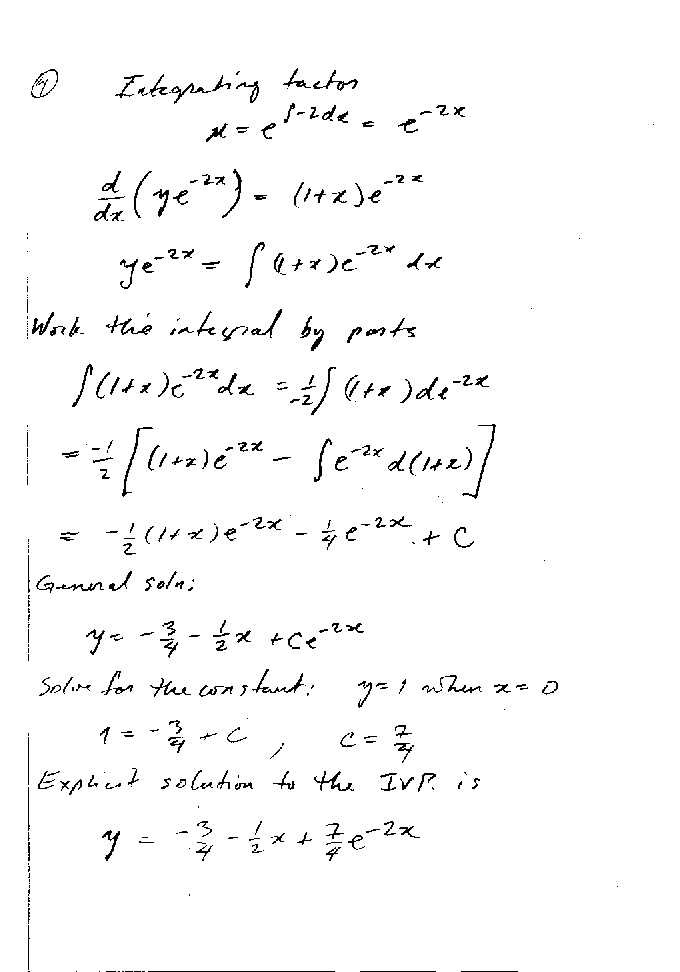 ④ Integrating factor
μ = e^{∫-2dx} = e^{-2x}
d/dx (ye^{-2x}) = (1+x)e^{-2x}
ye^{-2x} = ∫(1+x)e^{-2x} dx
Work this integral by parts
∫(1+x)e^{-2x}dx = 1/-2 ∫(1+x)de^{-2x}
= -1/2 [(1+x)e^{-2x} - ∫e^{-2x}d(1+x)]
= -1/2(1+x)e^{-2x} - 1/4 e^{-2x} + C
General soln:
y = -3/4 - 1/2x + Ce^{-2x}
Solve for the constant: y=1 when x=0
1 = -3/4 + C, C = 7/4
Explicit solution to the IVP. is
y = -3/4 - 1/2x + 7/4e^{-2x}